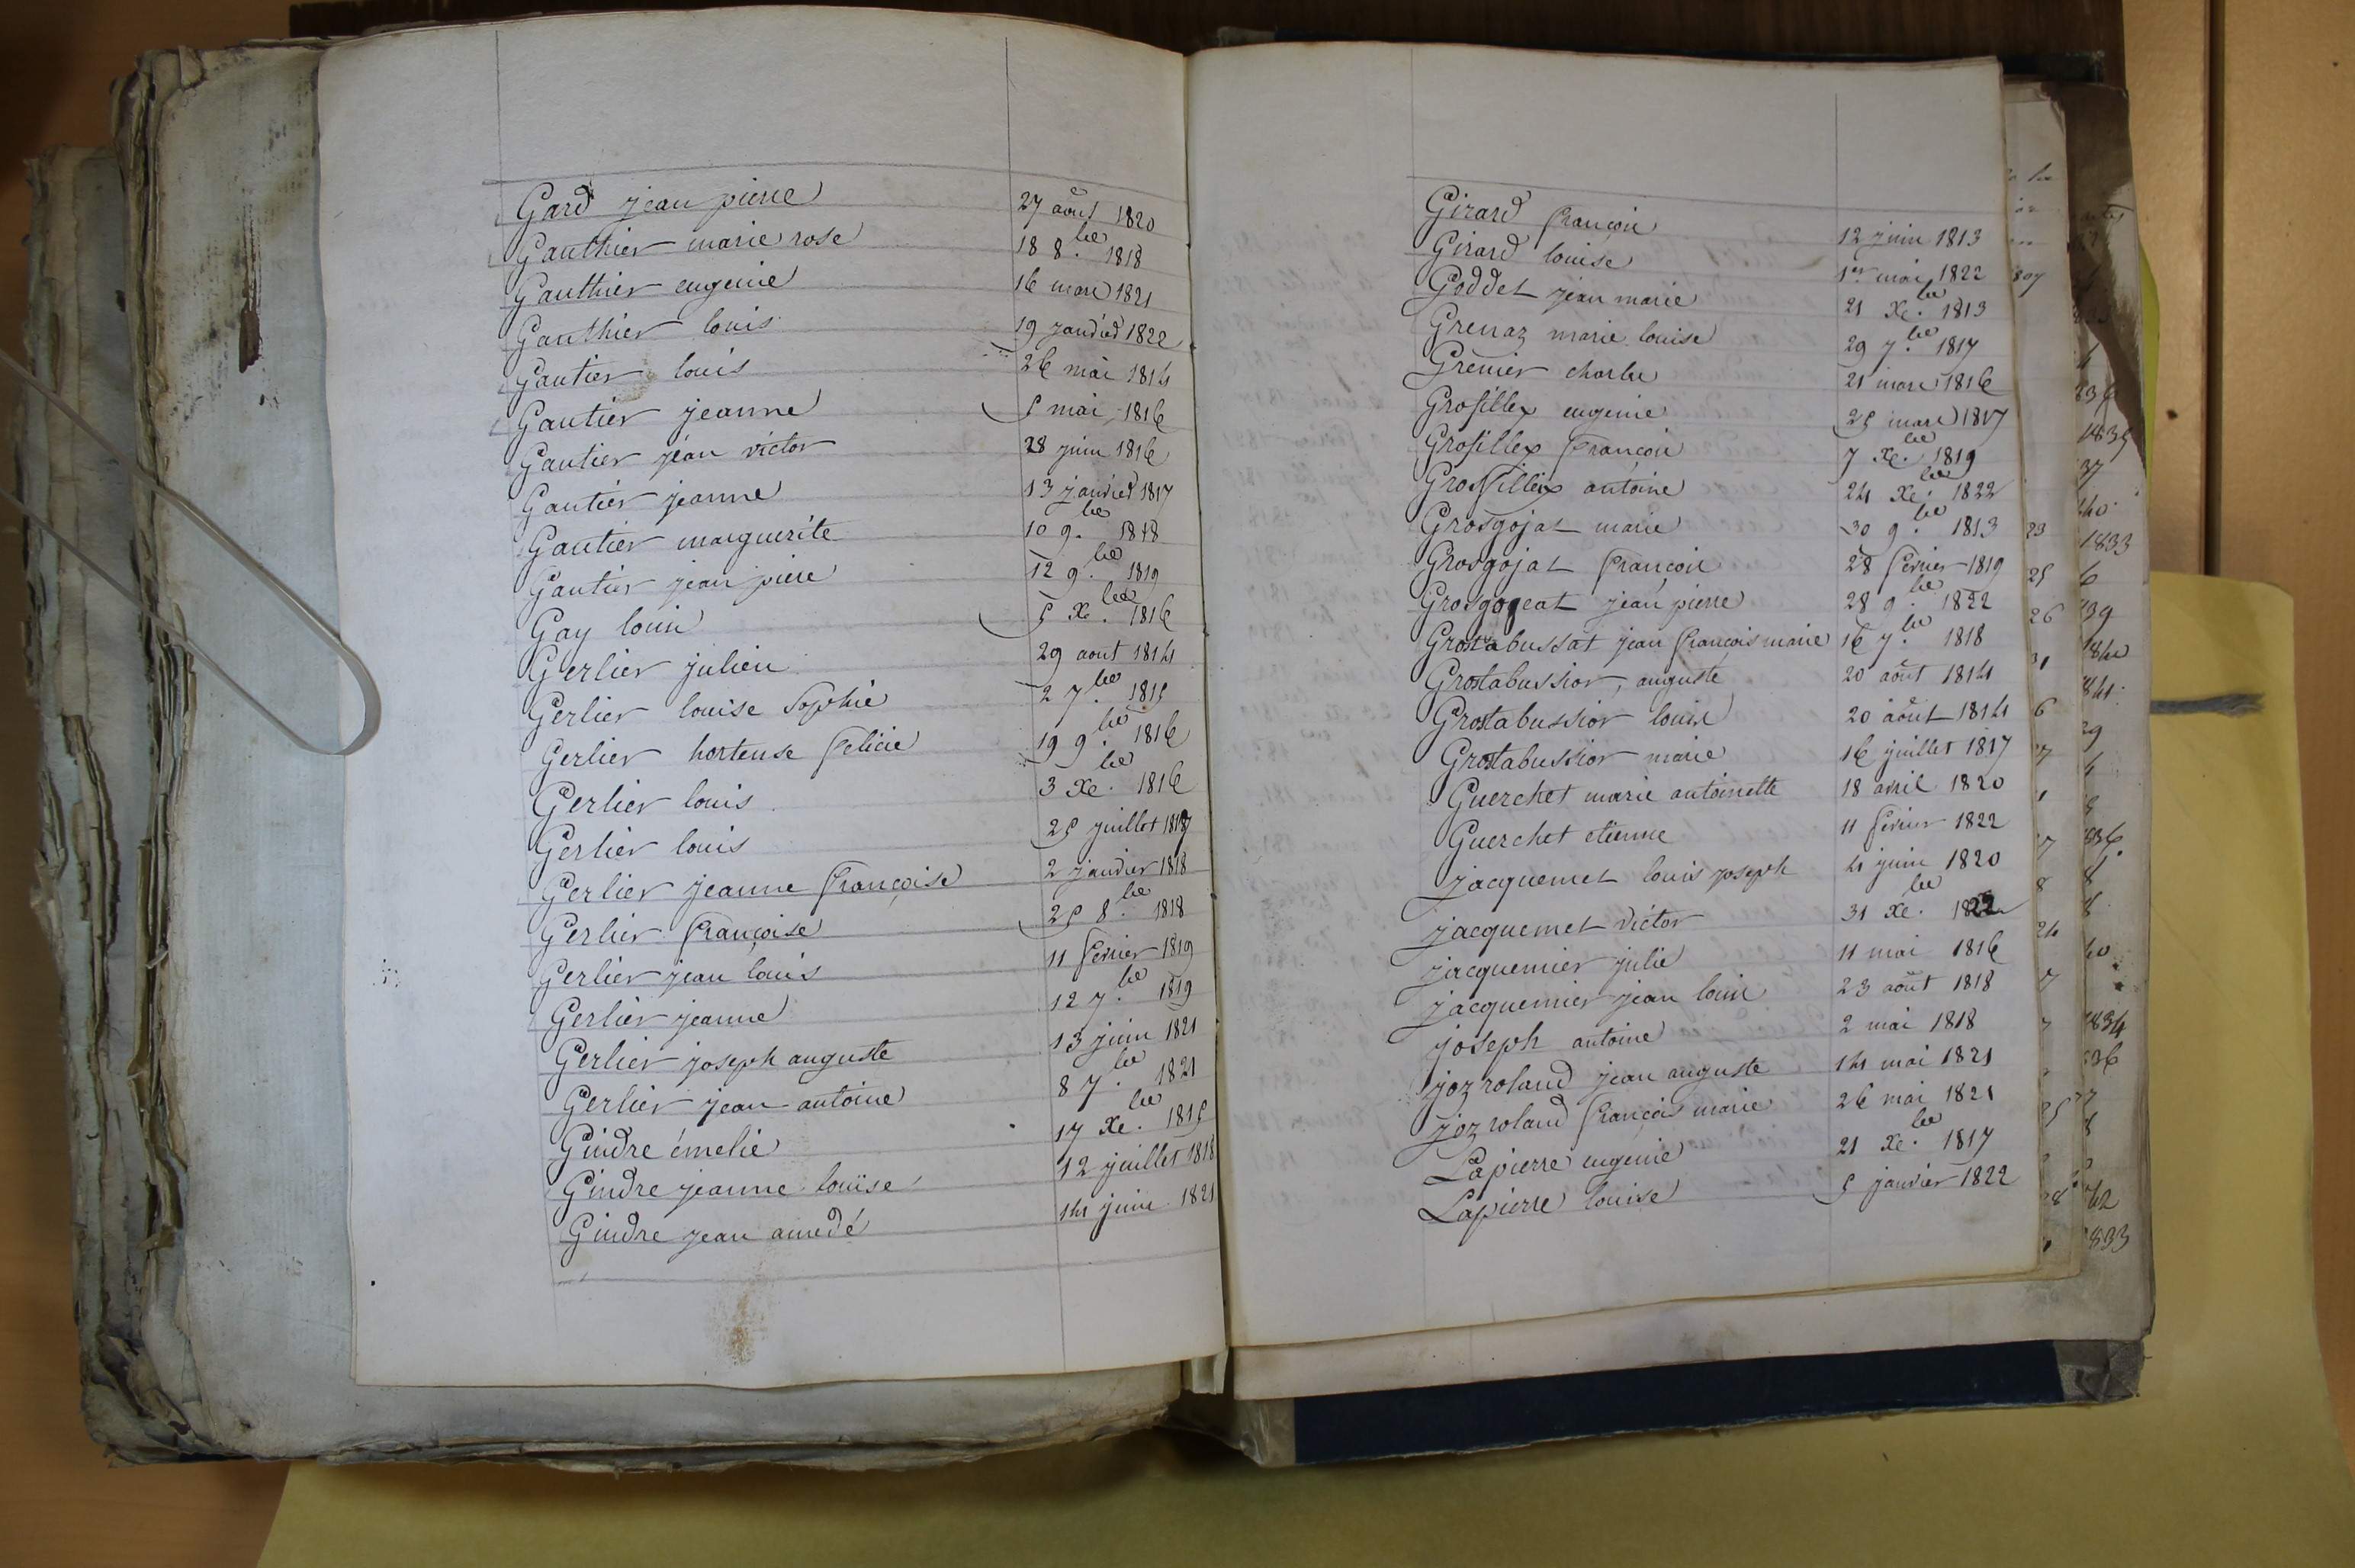 Gard jean pierre 27 août 1820
Gauthier marie rose 18 8.bre 1818
Gauthier eugenie 16 mars 1821
Gauthier louis 19 janvier 1822
Gautier louis 26 mai 1814
Gautier jeanne 5 mai 1816
Gautier jéan victor 28 juin 1816
Gautier jeanne 13 janvier 1817
Gautier marguerite 10 9.bre 1818
Gautier jean piere 12 9.bre 1819
Gay louis 5 Xe.bre 1816
Gerlier julien 29 aout 1814
Gerlier louise Sophie 2 7.bre 1815
Gerlier hortense felicie 19 9.bre 1816
Gerlier louis 3 Xe.bre 1816
Gerlier louis 25 juillet 1817
Gerlier jeanne françoise 2 janvier 1818
Gerlier françoise 25 8.bre 1818
Gerlier jean louis 11 fevrier 1819
Gerlier jeanne 12 7.bre 1819
Gerlier joseph auguste 13 juin 1821
Gerlier jean antoine 8 7.bre 1821
Gindre émelie 17 Xe.bre 1815
Gindre jeanne louise 12 juillet 1818
Gindre jean amedé 14 juin 1821
Girard françois 12 juin 1813
Girard louise 1er mai 1822
Goddet jean marie 21 Xe.bre 1813
Grenaz marie louise 29 7.bre 1817
Grenier charles 21 mars 1816
Grosillex eugenie 25 mars 1817
Grosillex françois 7 Xe.bre 1819
Grossillex antoine 24 Xe.bre 1822
Grosgojat marie 30 9.bre 1813
Grosgojat françois 28 fevrier 1819
Grosgogeat jean pierre 28 9.bre 1822
Grostabussat jean françois marie 16 7.bre 1818
Grostabussior, auguste 20 août 1814
Grostabussior louis 20 août 1814
Grostabussior marie 16 juillet 1817
Guerchet marie antoinette 18 avril 1820
Guerchet etienne 11 fevrier 1822
jacquemet louis joseph 4 juin 1820
jacquemet victor 31 Xe.bre 1822
jacquemier julie 11 mai 1816
jacquemier jean louis 23 août 1818
joseph antoine 2 mai 1818
joz roland jean auguste 14 mai 1821
joz roland françois marie 26 mai 1821
Lapierre eugenie 21 Xe.bre 1817
Lapierre louise 5 janvier 1822